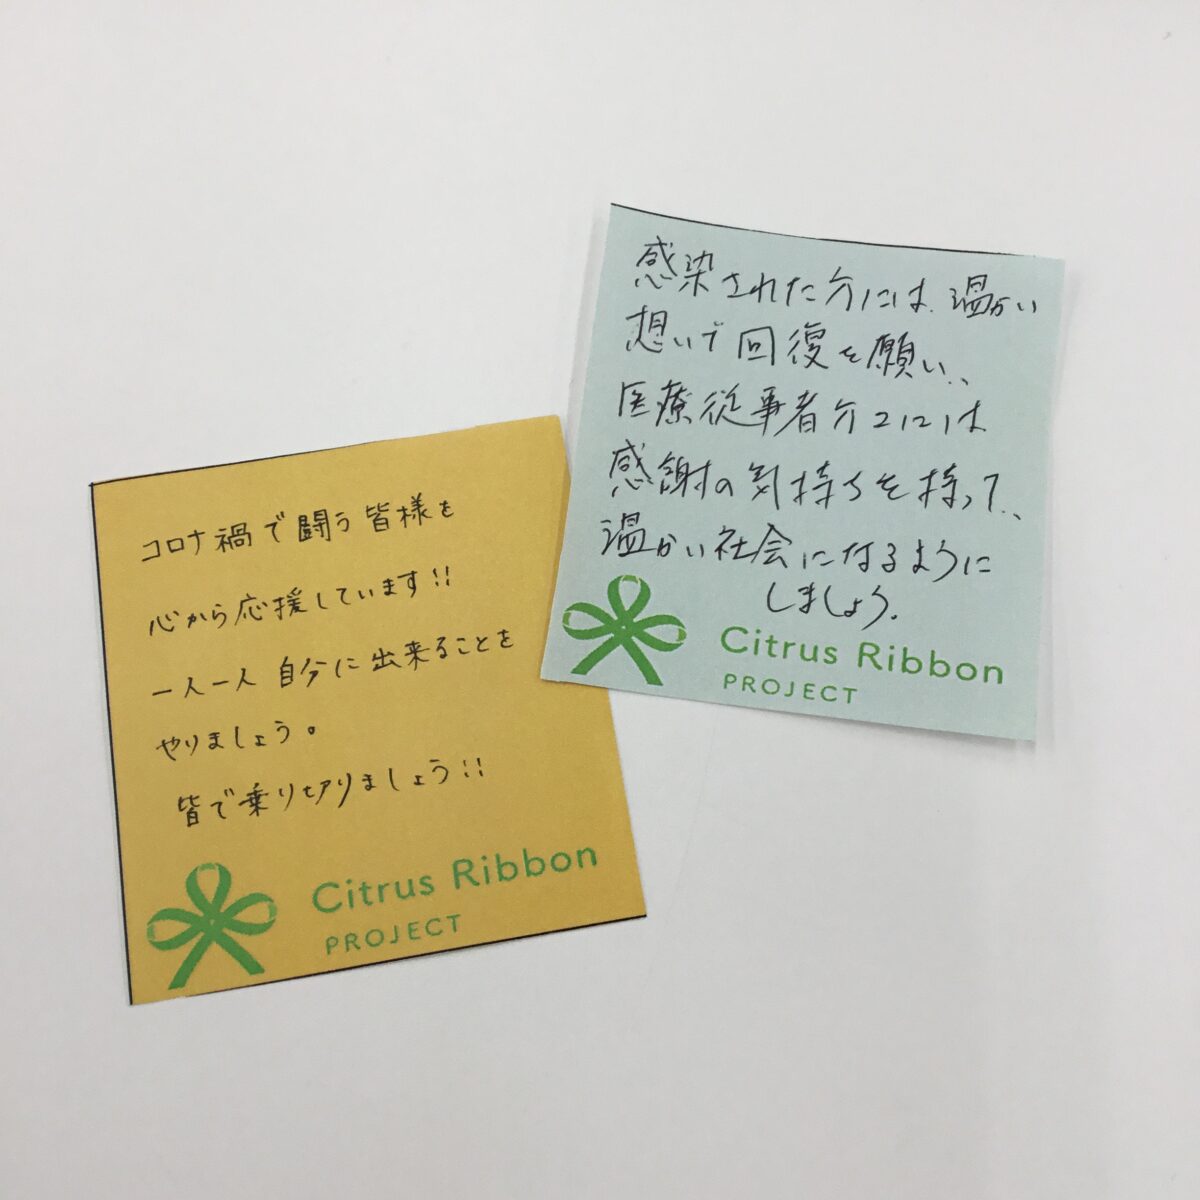 コロナ禍で闘う皆様を
心から応援しています!!
一人一人 自分に出来ることを
やりましょう。
皆で乗り切りましょう!!
Citrus Ribbon
PROJECT
感染された方には、温かい
想いで回復を願い、
医療従事者方々には
感謝の気持ちを持って、
温かい社会になるように
しましょう。
Citrus Ribbon
PROJECT